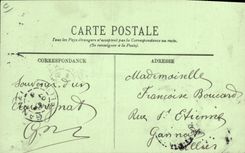 CARTE POSTALE
Tous les Pays étrangers n'acceptent pas la Correspondance au recto.
(Se renseigner à la Poste)
CORRESPONDANCE
ADRESSE
Souvenir d'un
Mademoiselle
Françoise Boucard
Rue St Etienne
Gannat
Allier